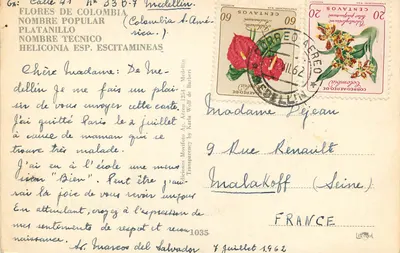 Ex: Calle 41 Nº 33 6-7 Medellin
(Colombia S. Amérique).
FLORES DE COLOMBIA
NOMBRE POPULAR
PLATANILLO
NOMBRE TECNICO
HELICONIA ESP. ESCITAMINEAS
Chère Madame: De Medellin
Je me fais un plaisir
de vous envoyer cette carte,
J'ai quitté Paris le 2 juillet
à cause de maman qui se
trouve très malade.
J'ai eu à l'école une mention
"Bien". Peut être j'aurai
la joie de vous revoir un jour
En attendant, croyez à l'expression de
mes sentiments de respect et reconnaissance.
Ar. Marcos del Salvador 7 juillet 1962
1035
60
60
20
20
CORREO AEREO
MEDELLIN
Madame Déjean
9 Rue Renault
Malakoff (Seine)
FRANCE